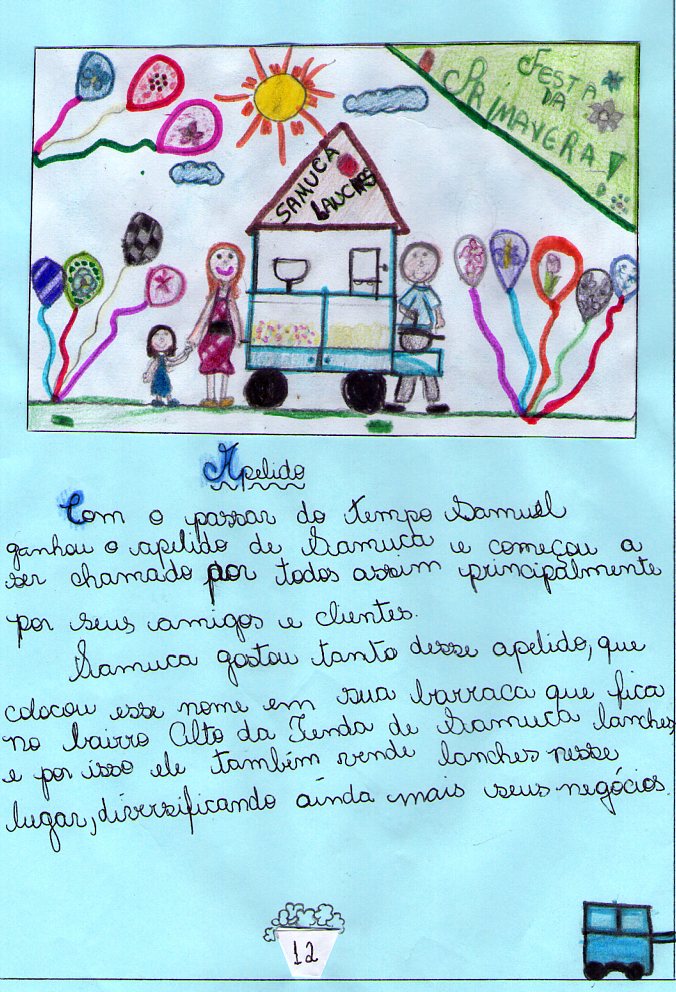 FESTA
DA
PRIMAVERA!
SAMUCA
LANCHES
Apelido
Com o passar do tempo Samuel
ganhou o apelido de Samuca e começou a
ser chamado por todos assim principalmente
por seus amigos e clientes.
Samuca gostou tanto desse apelido, que
colocou esse nome em sua barraca que fica
no bairro Alto da Tenda de Samuca lanches
e por isso ele também vende lanches nesse
lugar, diversificando ainda mais seus negócios.
12